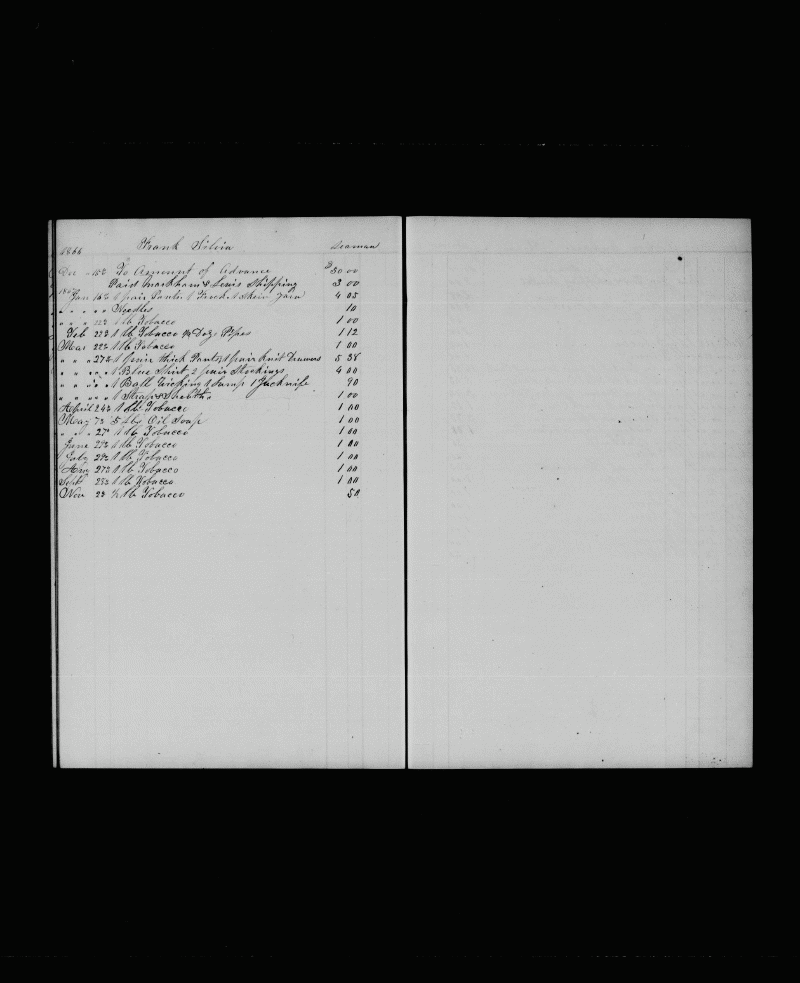 1866 Frank Silvia Seaman
Dec " 15th To Amount of Advance $30 00
Paid Markham & Lewis Shipping 3 00
1867 Jan 16th 1 pair Pants 1 Frock 1 Skein Yarn 4 05
" " " " Needles 10
" " " 1 lb Tobacco 1 00
Feb 1 lb Tobacco Doz Pipes 1 12
Mar 22d 1 lb Tobacco 1 00
" " " 27th 1 pair thick Pants 1 pair Knit Drawers 5 38
" " " " 1 Blue Shirt 2 pair Stockings 4 00
" " " " 1 Ball Wicking 1 Lamp 1 Jacknife 90
" " " " 1 Strap & Sheath 1 00
April 24th 1 lb Tobacco 1 00
May 7th 5 lbs Oil Soap 1 00
" " 27th 1 lb Tobacco 1 00
June 1 lb Tobacco 1 00
July 1 lb Tobacco 1 00
Aug 27th 1 lb Tobacco 1 00
Sept 1 lb Tobacco 1 00
Nov ½ lb Tobacco 50